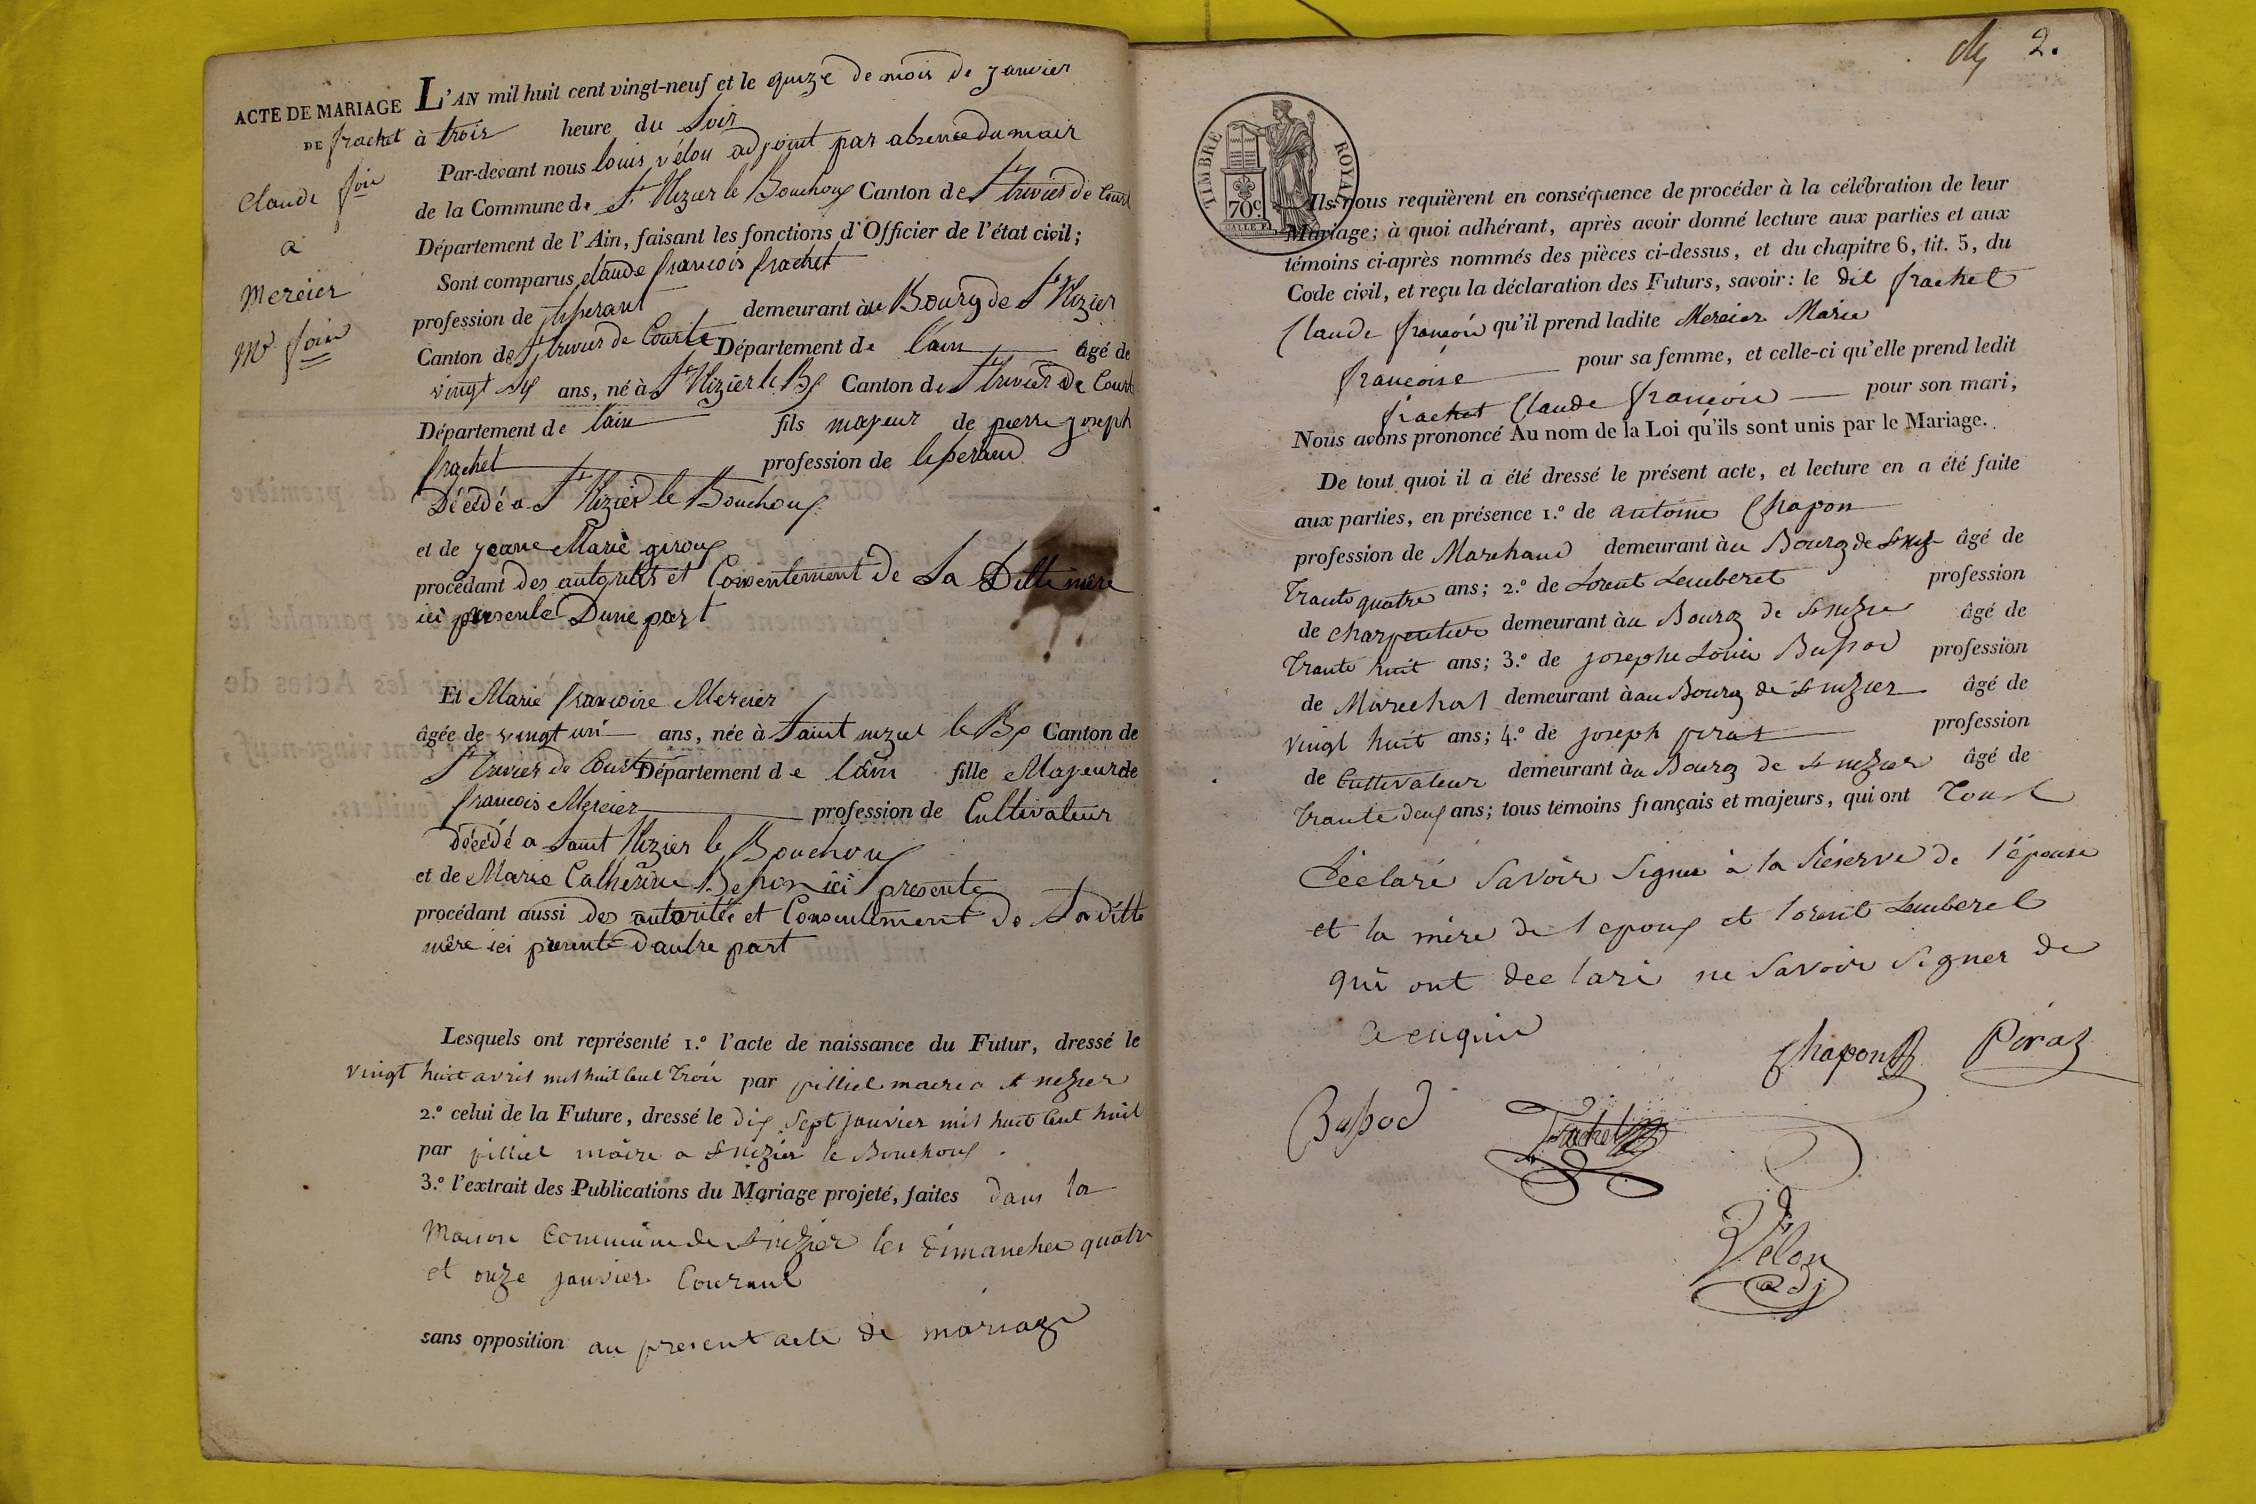 ACTE DE MARIAGE
DE frachet
Claude fois
a
Mercier
Mie foise
L'AN mil huit cent vingt-neuf et le quize de mois de janvier
à trois heure du Soir
Par-devant nous louis vélon adjoint par absence du mair
de la Commune de St Nizier le Bouchoux Canton de St trivier de Court
Département de l'Ain, faisant les fonctions d'Officier de l'état civil;
Sont comparus claude françois frachet
profession de demeurant àu Bourg de St Nizier
Canton de St trivier de Courte Département de lain âgé de
vingt ans, né à St Nizier le Bx Canton de St trivier de Court
Département de lain fils majeur de pierre joseph
frachet profession de
Décédé a St Nizier le Bouchoux
et de jeane Marie giroux
procédant des autorités et Consentement de La Ditte mère
ici presente Dune part
Et Marie françoise Mercier
âgée de vingt un ans, née à Saint nizier le Bx Canton de
St trivier de Court Département de lain fille Majeur de
françois Mercier profession de Cultivateur
décédé a Saint Nizier le Bouchoux
et de Marie Catherine ici presente
procédant aussi des autorités et Consentement de La ditte
mère ici presente dautre part
Lesquels ont représenté 1.º l'acte de naissance du Futur, dressé le
vingt huit avril mil huit Cent Trois par pilliel maire a St nizier
2.º celui de la Future, dressé le dix Sept janvier mil huit Cent huit
par pilliel maire a St nizier le Bouchoux
3.º l'extrait des Publications du Mariage projeté, faites dans la
Maison Commune de St nizier les dimanches quatre
et onze janvier Courant
sans opposition au present acte de mariage
2.
TIMBRE ROYAL
70c
Ils nous requièrent en conséquence de procéder à la célébration de leur
Mariage; à quoi adhérant, après avoir donné lecture aux parties et aux
témoins ci-après nommés des pièces ci-dessus, et du chapitre 6, tit. 5, du
Code civil, et reçu la déclaration des Futurs, savoir: le dit frachet
Claude françois qu'il prend ladite Mercier Marie
françoise pour sa femme, et celle-ci qu'elle prend ledit
frachet Claude françois pour son mari,
Nous avons prononcé Au nom de la Loi qu'ils sont unis par le Mariage.
De tout quoi il a été dressé le présent acte, et lecture en a été faite
aux parties, en présence 1.º de antoine Chapon
profession de Marchand demeurant àu Bourg de St niz âgé de
Trante quatre ans; 2.º de Lorent Lemberet profession
de charpentier demeurant àu Bourg de St nizier âgé de
Trante huit ans; 3.º de josephe Louis Bussod profession
de Marechal demeurant à au Bourg de St nizier âgé de
vingt huit ans; 4.º de joseph piraz profession
de Cultivateur demeurant àu Bourg de St nizier âgé de
Trante deux ans; tous témoins français et majeurs, qui ont Tous
Déclaré Savoir Signer à la Réserve de l'épouse
et la mère de lepoux et lorent Lemberet
qui ont declaré ne Savoir Signer de
a enquis
Chapon Piraz
Bussod Frachet
Vélon
adj